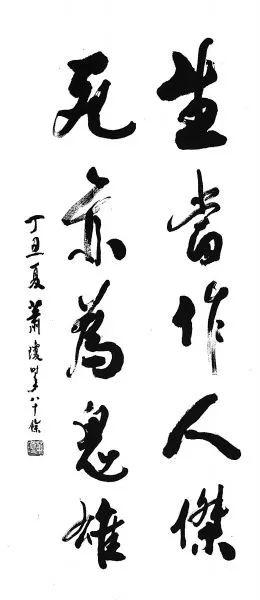 生當作人傑
死亦為鬼雄
丁丑夏蕭瓊時年八十餘